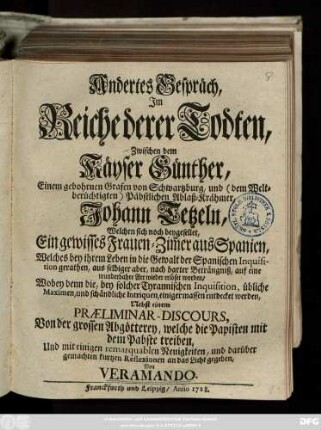 Andertes Gespräch,
Im
Reiche derer Todten,
Zwischen dem
Kayser Günther,
Einem gebohrnen Grafen von Schwartzburg, und (dem Welt-
berüchtigten) Päbstlichen Ablaß-Krähmer,
Johann Tetzeln,
Welchen sich noch beygesellet,
Ein gewisses Frauen-Zimer aus Spanien,
Welches bey ihrem Leben in die Gewalt der Spanischen Inquisi-
tion gerathen, aus selbiger aber, nach harter Beträngniß, auf eine
wieder erlöst worden/
Wobey denn die, bey solcher Tyrannischen Inquisition, übliche
Maximen, und schändliche Intriquen, einiger massen entdecket werden,
Nebst einem
PRÆLIMINAR-DISCOURS,
Von der grossen Abgötterey, welche die Papisten mit
dem Pabste treiben,
Und mit einigen remarquablen Neuigkeiten, und darüber
gemachten kurtzen Reflexionen an das Licht gegeben,
Von
VERAMANDO.
Franckfurth und Leipzig/ Anno 1728.